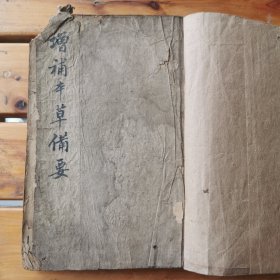 增補本草備要